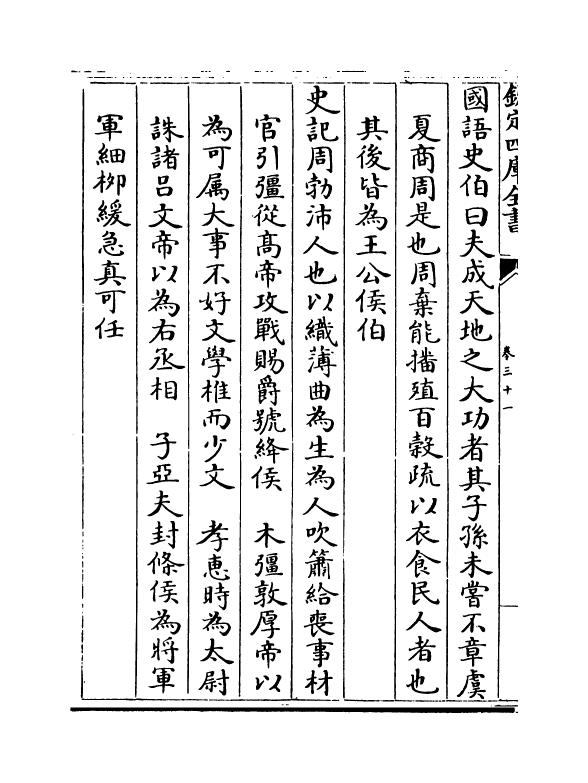 欽定四庫全書
卷三十一
國語史伯曰夫成天地之大功者其子孫未嘗不章虞
夏商周是也周棄能播殖百穀疏以衣食民人者也
其後皆為王公侯伯
史記周勃沛人也以織薄曲為生為人吹簫給喪事材
官引彊從高帝攻戰賜爵號絳侯　木彊敦厚帝以
為可属大事不好文學椎而少文　孝惠時為太尉
誅諸呂文帝以為右丞相　子亞夫封條侯為將軍
軍細柳緩急真可任